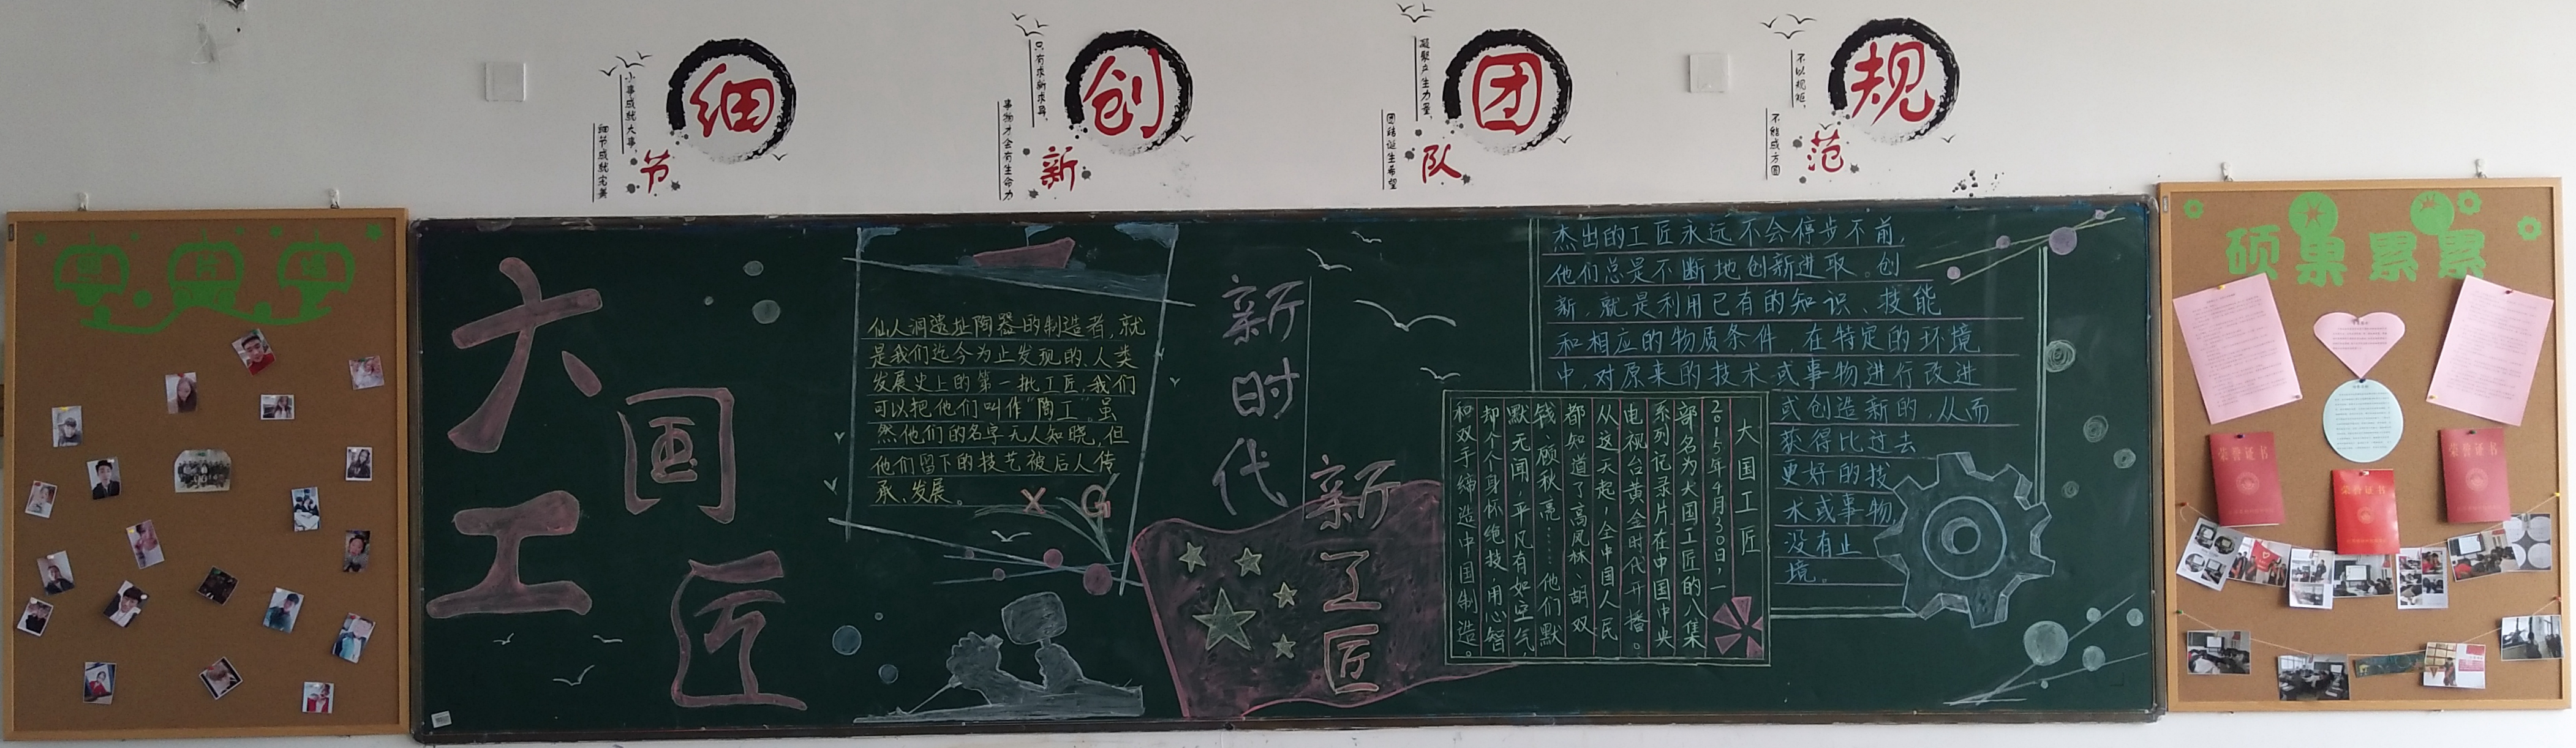 细节
小事成就大事,
细节成就完美
创新
只有求新求异,
事物才会有生命力
团队
凝聚产生力量,
团结诞生希望
规范
不以规矩,
不能成方圆
大国
工匠
仙人洞遗址陶器的制造者,就
是我们迄今为止发现的、人类
发展史上的第一批工匠,我们
可以把他们叫作“陶工”。虽
然他们的名字无人知晓,但
他们留下的技艺被后人传
承、发展。
X G
新时代
新工匠
杰出的工匠永远不会停步不前,
他们总是不断地创新进取。创
新,就是利用已有的知识、技能
和相应的物质条件,在特定的环境
中,对原来的技术或事物进行改进
或创造新的,从而
获得比过去
更好的技
术或事物
没有止
境。
大国工匠
2015年4月30日,一
部名为大国工匠的八集
系列记录片在中国中央
电视台黄金时代开播。
从这天起,全中国人民
都知道了高凤林、胡双
钱、顾秋亮……他们默
默无闻,平凡有如空气
却个个身怀绝技,用心智
和双手缔造中国制造。
硕果累累
荣誉证书
荣誉证书
荣誉证书